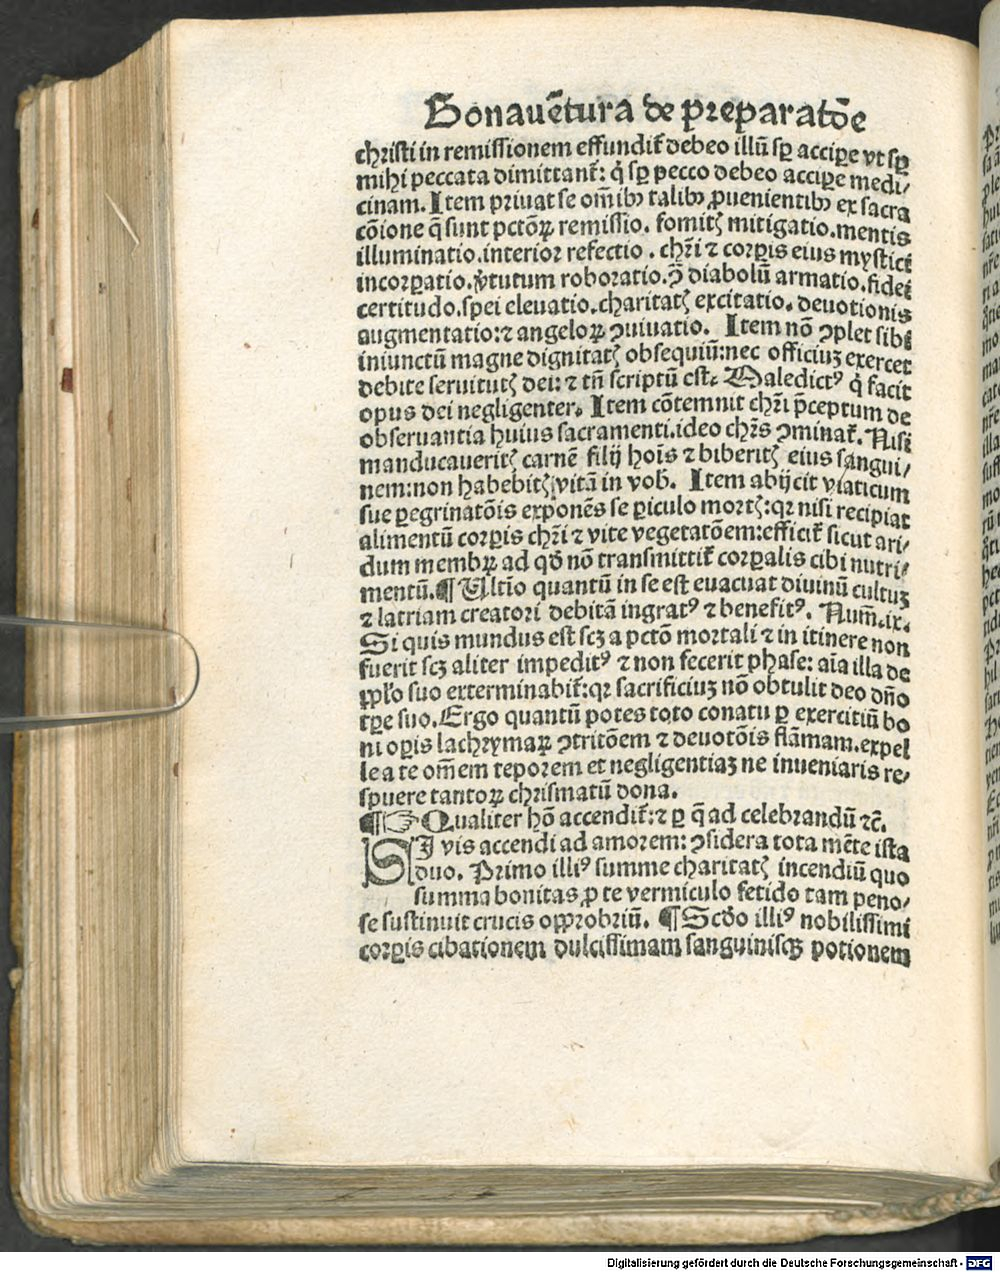 Bonauētura de preparatōe
christi in remissionem effundit᷑ debeo illū sꝑ acciꝑe vt sꝑ
mihi peccata dimittant᷑: q̇ sꝑ pecco debeo acciꝑe medi/
cinam. Item priuat se om̄ibꝫ talibꝫ ꝓuenientibꝫ ex sacra
cōione q̄ sunt pctōꝝ remissio. fomitꝭ mitigatio. mentis
illuminatio. interior refectio. chr̄i ⁊ corꝑis eius mystici
incorꝑatio. v̇tutum roboratio. ꝯ̄ diabolū armatio. fidei
certitudo. spei eleuatio. charitatꝭ excitatio. deuotionis
augmentatio: ⁊ angeloꝝ ꝯuiuatio. Item nō ꝯplet sibi
iniunctū magne dignitatꝭ obsequiū: nec officiuꝫ exercet
debite seruitutꝭ dei: ⁊ tn̄ scriptū est. Maledictꝰ q̇ facit
opus dei negligenter. Item cōtemnit chr̄i p̄ceptum de
obseruantia huius sacramenti. ideo chr̄s ꝯminat᷑. Nisi
manducaueritꝭ carnē filij hoīs ⁊ biberitꝭ eius sangui/
nem: non habebitꝭ vitā in vob̄. Item abijcit viaticum
sue ꝑegrinatōis exponēs se ꝑiculo mortꝭ: qꝛ nisi recipiat
alimentū corꝑis chr̄i ⁊ vite vegetatōem: efficit᷑ sicut ari/
dum membꝝ ad qd̄ nō transmittit᷑ corꝑalis cibi nutri/
mentū. ¶ Ultīo quantū in se est euacuat diuinū cultuꝫ
⁊ latriam creatori debitā ingratꝰ ⁊ benefitꝰ. Num̄. ix.
Si quis mundus est scꝫ a pctō mortali ⁊ in itinere non
fuerit scꝫ aliter impeditꝰ ⁊ non fecerit phase: aīa illa de
ꝓpl̄o suo exterminabit᷑: qꝛ sacrificiuꝫ nō obtulit deo dn̄o
tꝑe suo. Ergo quantū potes toto conatu ꝑ exercitiū bo
ni oꝑis lachrymaꝝ ꝯtritōem ⁊ deuotōis flāmam. expel
le a te om̄em teporem et negligentiaꝫ ne inueniaris re/
spuere tantoꝝ chrismatū dona.
¶ ☞ Qualiter hō accendit᷑: ⁊ ꝑ q̄ ad celebrandū ⁊c̄.
SI vis accendi ad amorem: ꝯsidera tota mēte ista
duo. Primo illiꝰ summe charitatꝭ incendiū quo
summa bonitas ꝓ te vermiculo fetido tam peno/
se sustinuit crucis oꝓbriū. ¶ Scd̄o illiꝰ nobilissimi
corꝑis cibationem dulcissimam sanguinisqꝫ potionem
Digitalisierung gefördert durch die Deutsche Forschungsgemeinschaft - DFG